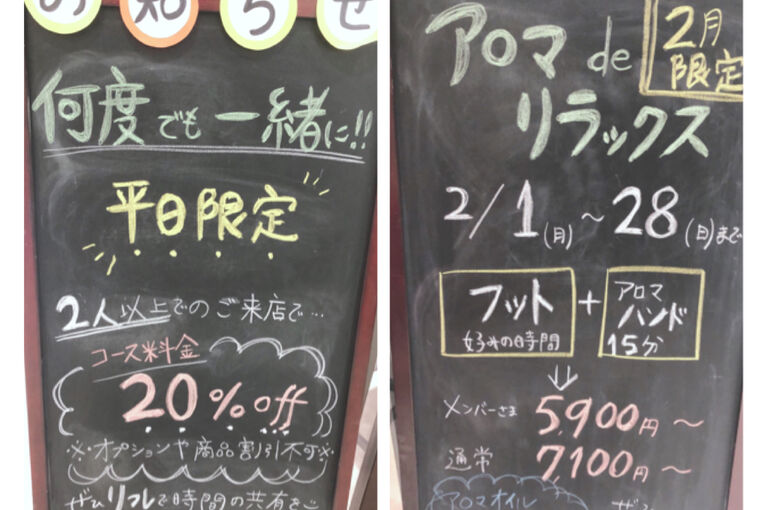 お知らせ
何度でも一緒に!!
平日限定
2人以上でのご来店で…
コース料金
20%off
※オプションや商品割引不可※
ぜひリフレで時間の共有をご
2月
限定
アロマ de
リラックス
2/1(月)~28(日)まで
フット
好みの時間
+
アロマ
ハンド
15分
メンバーさま 5,900円~
通常 7100円~
アロマオイル